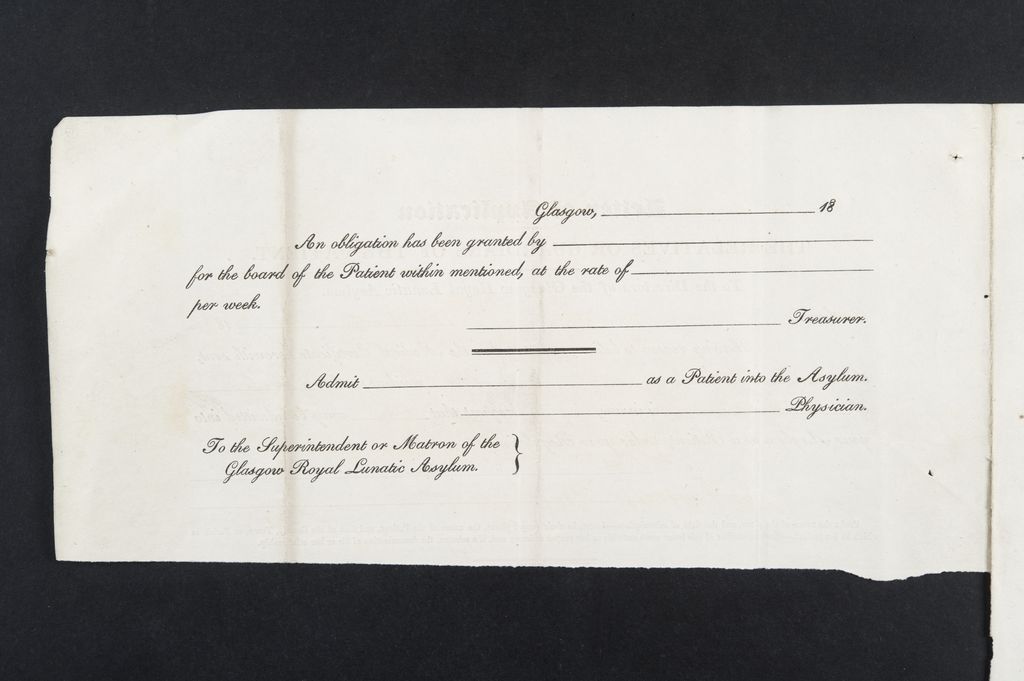 Glasgow, 18
An obligation has been granted by
for the board of the Patient within mentioned, at the rate of
per week.
Treasurer.
Admit as a Patient into the Asylum.
Physician.
To the Superintendent or Matron of the
Glasgow Royal Lunatic Asylum. }